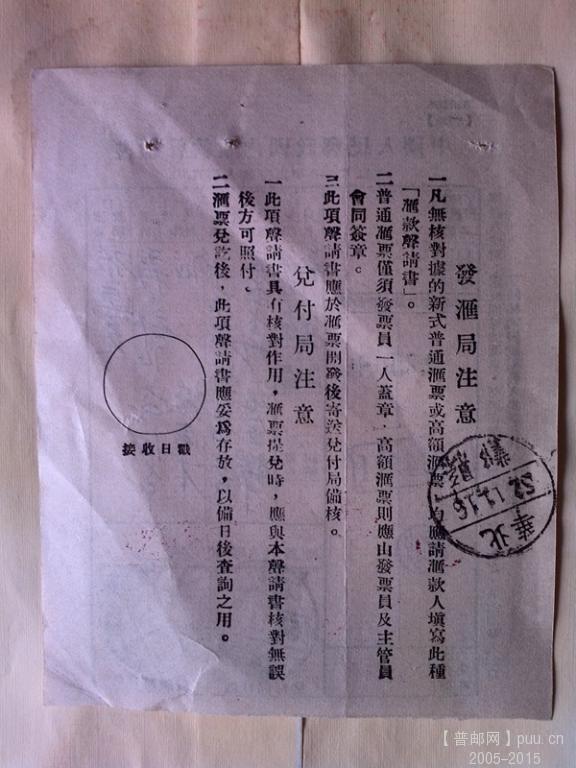 發滙局注意
一凡無核對據的新式普通滙票或高額滙票，均應請滙款人塡寫此種
「滙款聲請書」。
二普通滙票僅須發票員一人蓋章，高額滙票則應由發票員及主管員
會同簽章。
三此項聲請書應於滙票開發後寄送兌付局備核。
兌付局注意
一此項聲請書具有核對作用，滙票提兌時，應與本聲請書核對無誤
後方可照付。
二滙票兌訖後，此項聲請書應妥爲存放，以備日後查詢之用。
接收日戳
華北
52.1.16
【普邮网】puu.cn
2005-2015